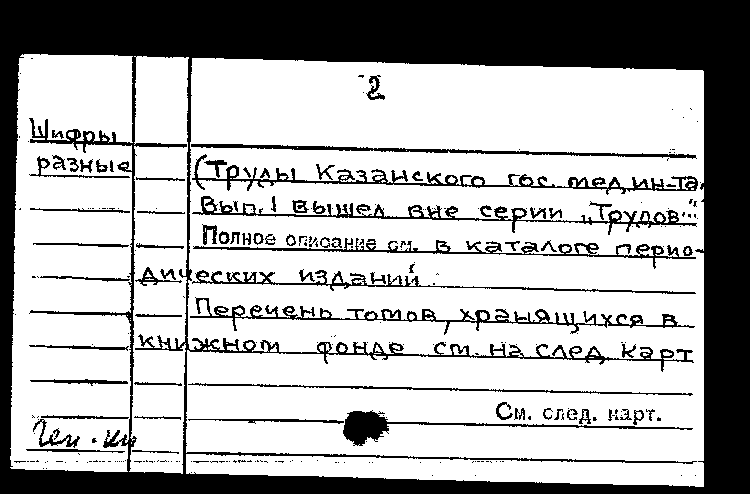 2
Шифры
разные
(Труды Казанского гос. мед. ин-та.
Вып. 1 вышел вне серии „Трудов“.
Полное описание см. в каталоге перио-
дических изданий.
Перечень томов, хранящихся в
книжном фонде см. на след. карт
См. след. карт.